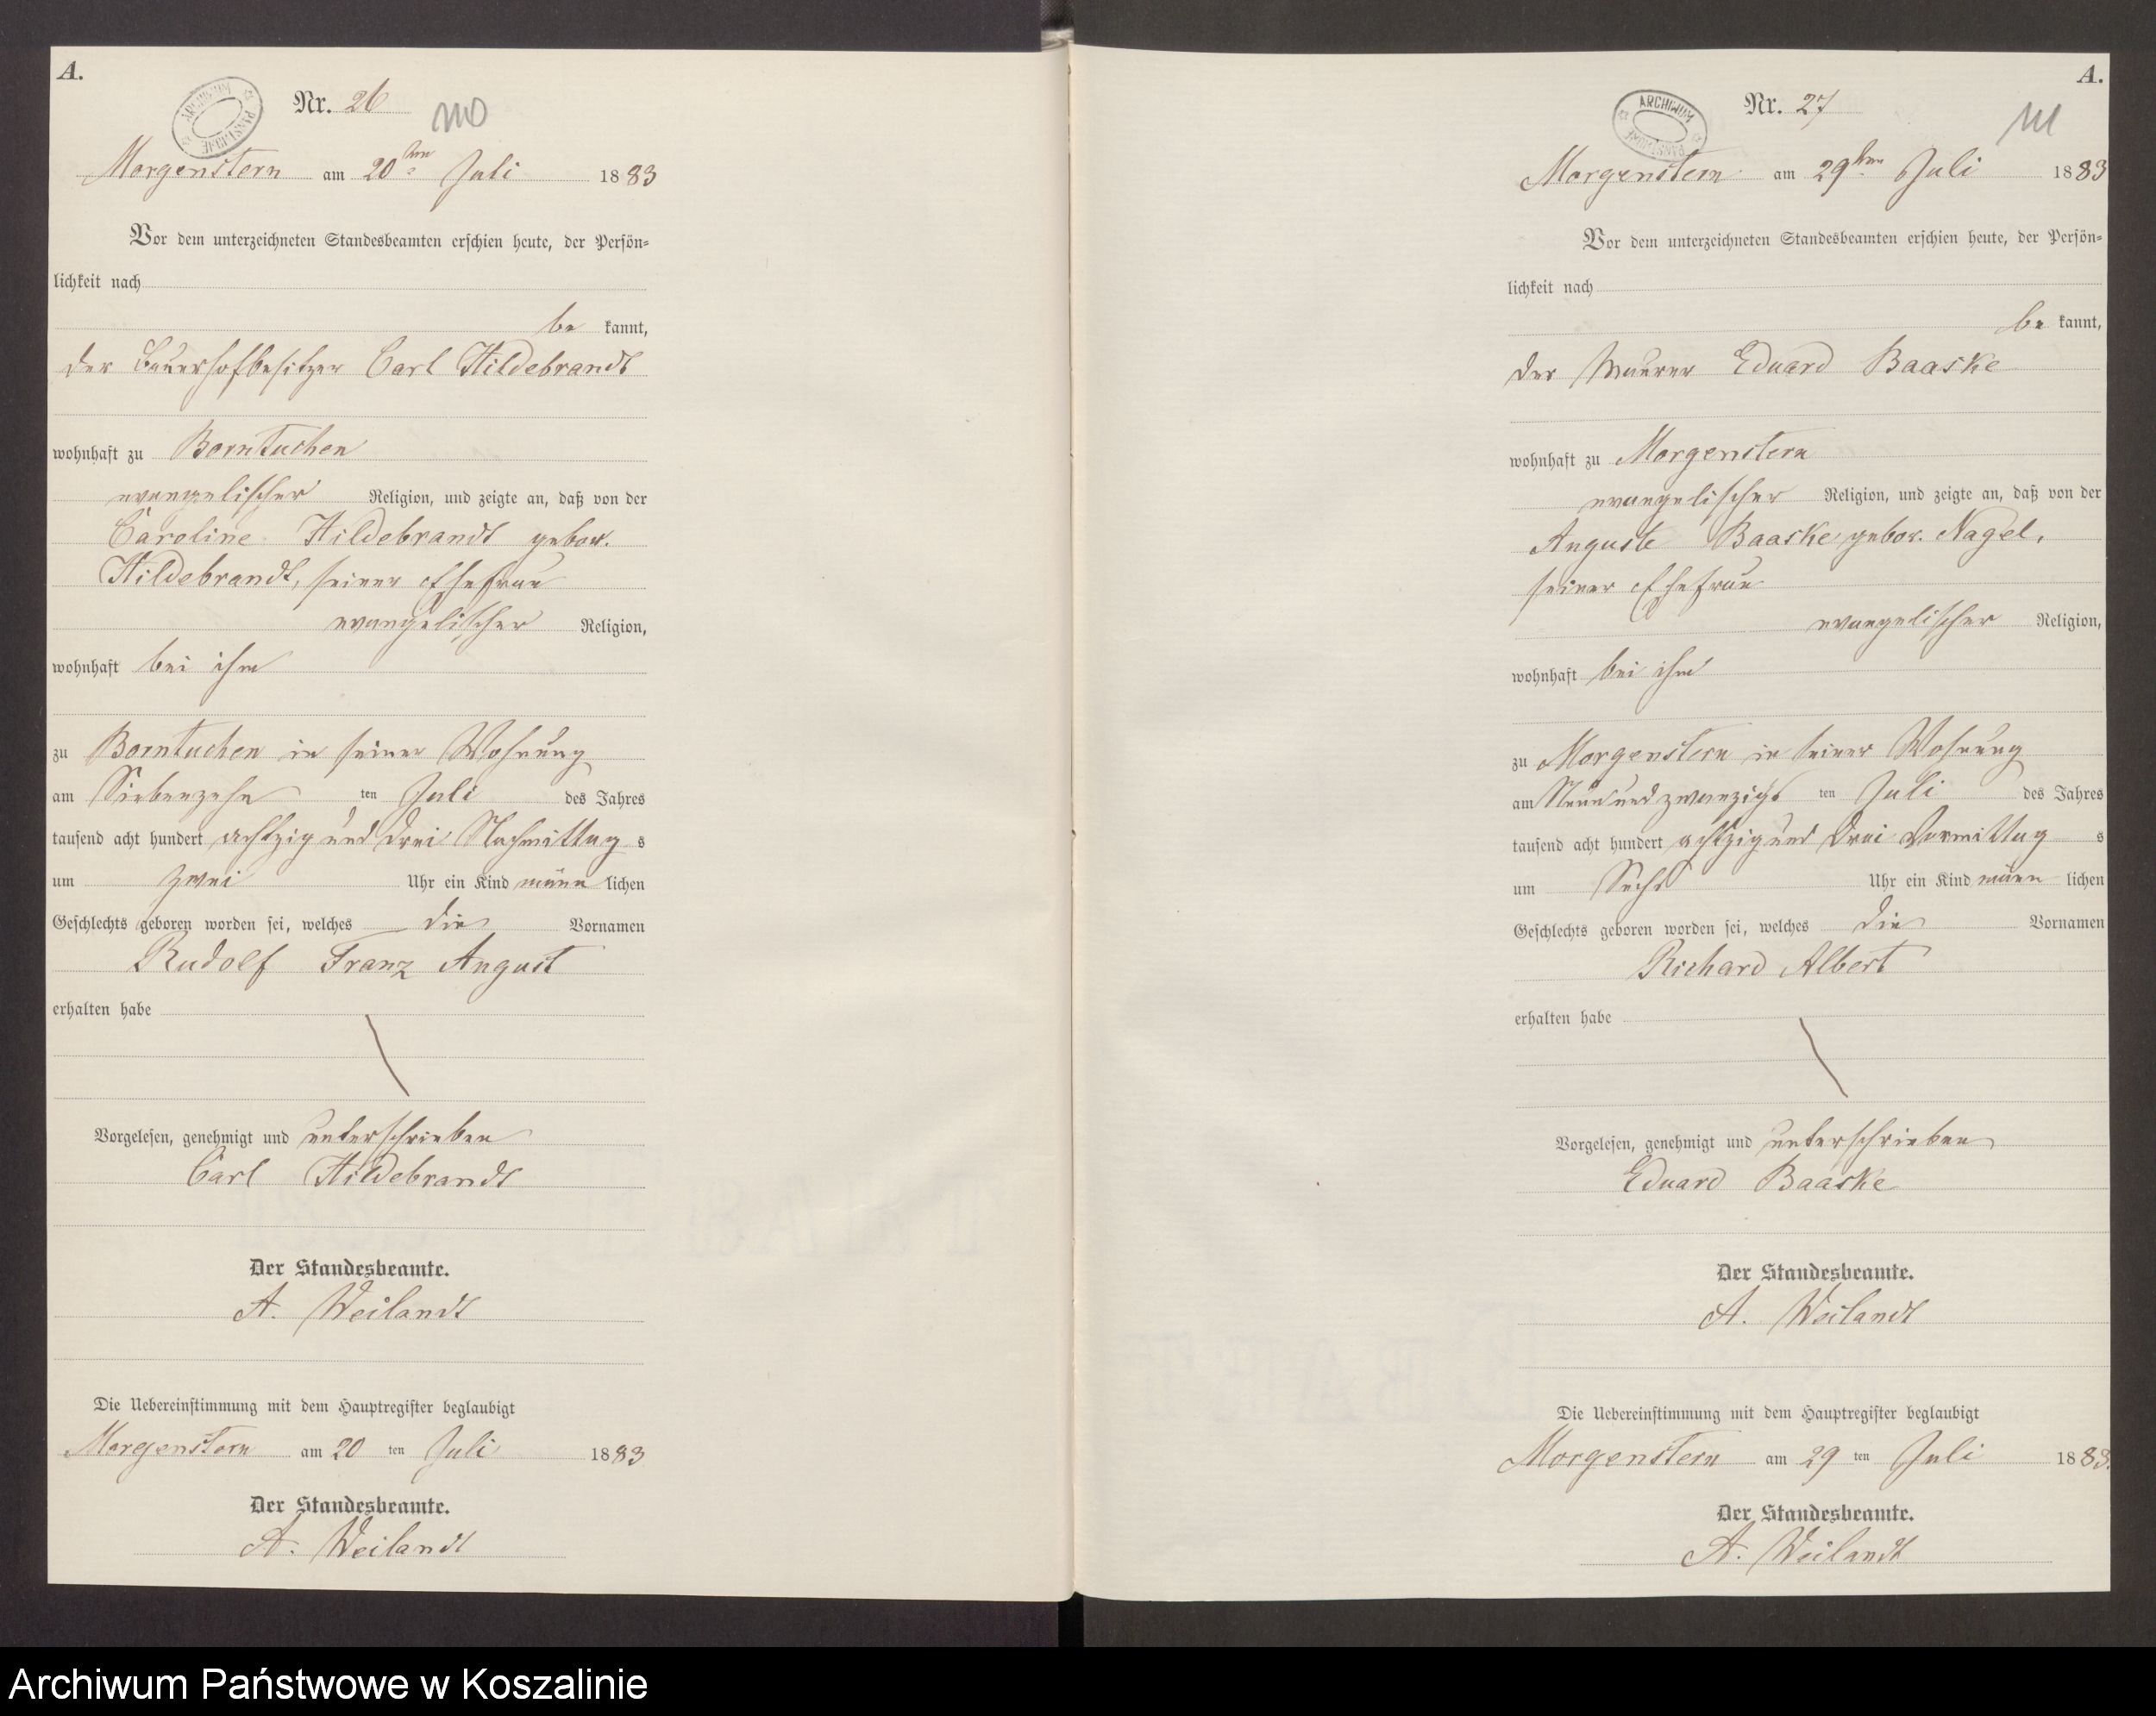 A.
Nr. 26
110
ARCHIWUM PAŃSTWOWE
Morgenstern am 20ten Juli 1883
Vor dem unterzeichneten Standesbeamten erschien heute, der Persön=
lichkeit nach
be kannt,
der Bauerhofbesitzer Carl Hildebrandt
wohnhaft zu Borntuchen
evangelischer Religion, und zeigte an, daß von der
Caroline Hildebrandt gebor.
Hildebrandt, seiner Ehefrau
evangelischer Religion,
wohnhaft bei ihm
zu Borntuchen in seiner Wohnung
am Siebenzehn ten Juli des Jahres
tausend acht hundert achtzig und drei Nachmittag s
um zwei Uhr ein Kind männ lichen
Geschlechts geboren worden sei, welches die Vornamen
Rudolf Franz August
erhalten habe
Vorgelesen, genehmigt und unterschrieben
Carl Hildebrandt
Der Standesbeamte.
A. Weilandt
Die Uebereinstimmung mit dem Hauptregister beglaubigt
Morgenstern am 20 ten Juli 1883
Der Standesbeamte.
A. Weilandt
A.
Nr. 27
111
ARCHIWUM PAŃSTWOWE
Morgenstern am 29ten Juli 1883
Vor dem unterzeichneten Standesbeamten erschien heute, der Persön=
lichkeit nach
be kannt,
der Maurer Eduard Baaske
wohnhaft zu Morgenstern
evangelischer Religion, und zeigte an, daß von der
Auguste Baaske gebor. Nagel,
seiner Ehefrau
evangelischer Religion,
wohnhaft bei ihm
zu Morgenstern in seiner Wohnung
am Neunundzwanzigs ten Juli des Jahres
tausend acht hundert achtzig und drei Vormittag s
um Sechs Uhr ein Kind männ lichen
Geschlechts geboren worden sei, welches die Vornamen
Richard Albert
erhalten habe
Vorgelesen, genehmigt und unterschrieben
Eduard Baaske
Der Standesbeamte.
A. Weilandt
Die Uebereinstimmung mit dem Hauptregister beglaubigt
Morgenstern am 29 ten Juli 1883.
Der Standesbeamte.
A. Weilandt
Archiwum Państwowe w Koszalinie